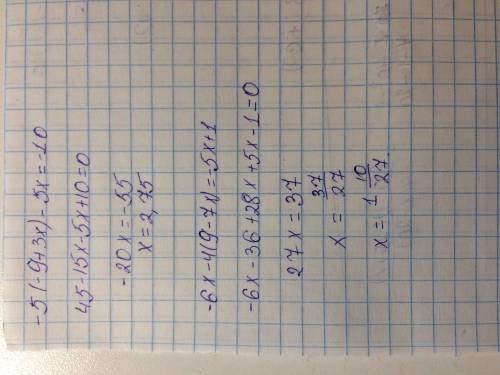 -5(-9+3x)-5x=-10
45-15x-5x+10=0
-20x=-55
x=2,75
-6x-4(9-7x)=-5x+1
-6x-36+28x+5x-1=0
27x=37
x=37/27
x=1 10/27